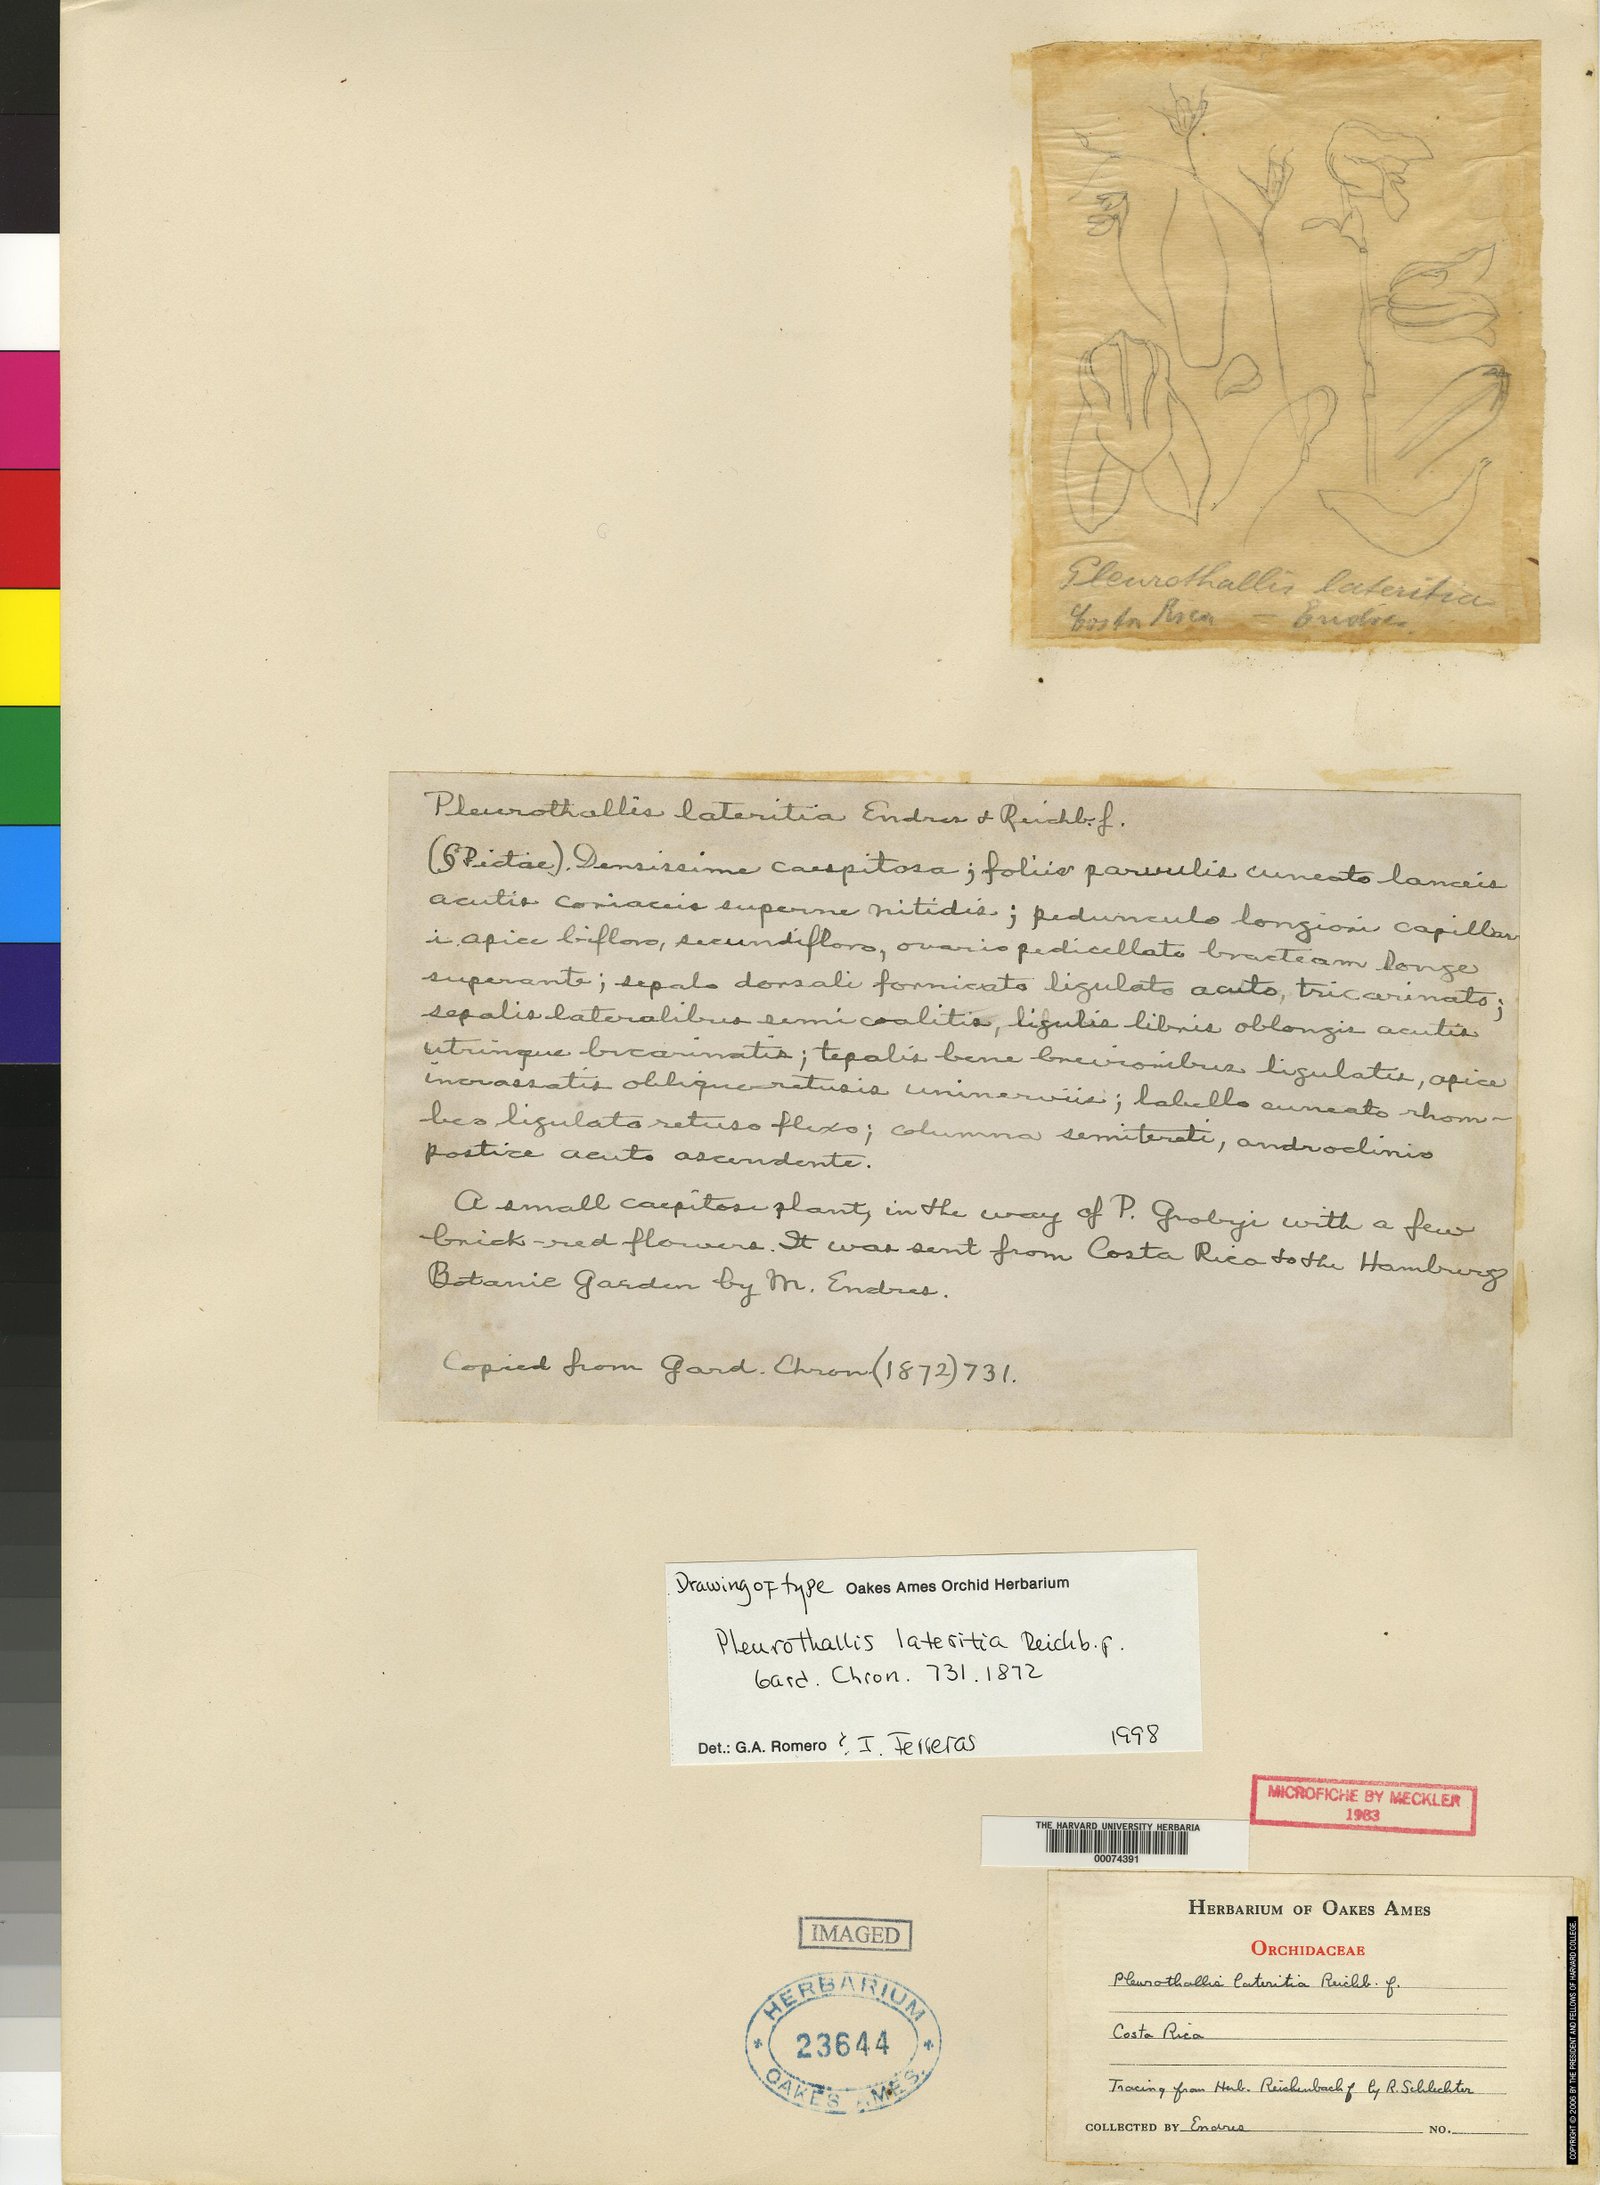 Pleurothallis lateritia
Costa Rica — Endres.
Pleurothallis lateritia Endres & Reichb. f.
(§ Pictae). Densissime caespitosa; foliis parvulis cuneato lanceis
acutis coriaceis superne nitidis; pedunculo longiori capillar
i apice bifloro, secundifloro, ovario pedicellato bracteam longe
superante; sepalo dorsali fornicato ligulato acuto, tricarinato;
sepalis lateralibus semi coalitis, ligulis libris oblongis acutis
utrinque bicarinatis; tepalis bene brevioribus ligulatis, apice
incrassatis oblique retusis uninerviis; labello cuneato rhom-
beo ligulato retuso flexo; columna semitereti, androclinio
postice acuto ascendente.
A small caespitose plant, in the way of P. Grobyi with a few
brick-red flowers. It was sent from Costa Rica to the Hamburg
Botanic Garden by M. Endres.
Copied from Gard. Chron. (1872) 731.
Drawing of type Oakes Ames Orchid Herbarium
Pleurothallis lateritia Reichb. f.
Gard. Chron. 731. 1872
Det.: G.A. Romero & I. Ferreras 1998
MICROFICHE BY MECKLER
1983
THE HARVARD UNIVERSITY HERBARIA
00074391
HERBARIUM OF OAKES AMES
ORCHIDACEAE
Pleurothallis lateritia Reichb. f.
Costa Rica
Tracing from Herb. Reichenbach f by R. Schlechter
COLLECTED BY Endres NO.
IMAGED
HERBARIUM
23644
OAKES AMES
COPYRIGHT © 2006 BY THE PRESIDENT AND FELLOWS OF HARVARD COLLEGE.